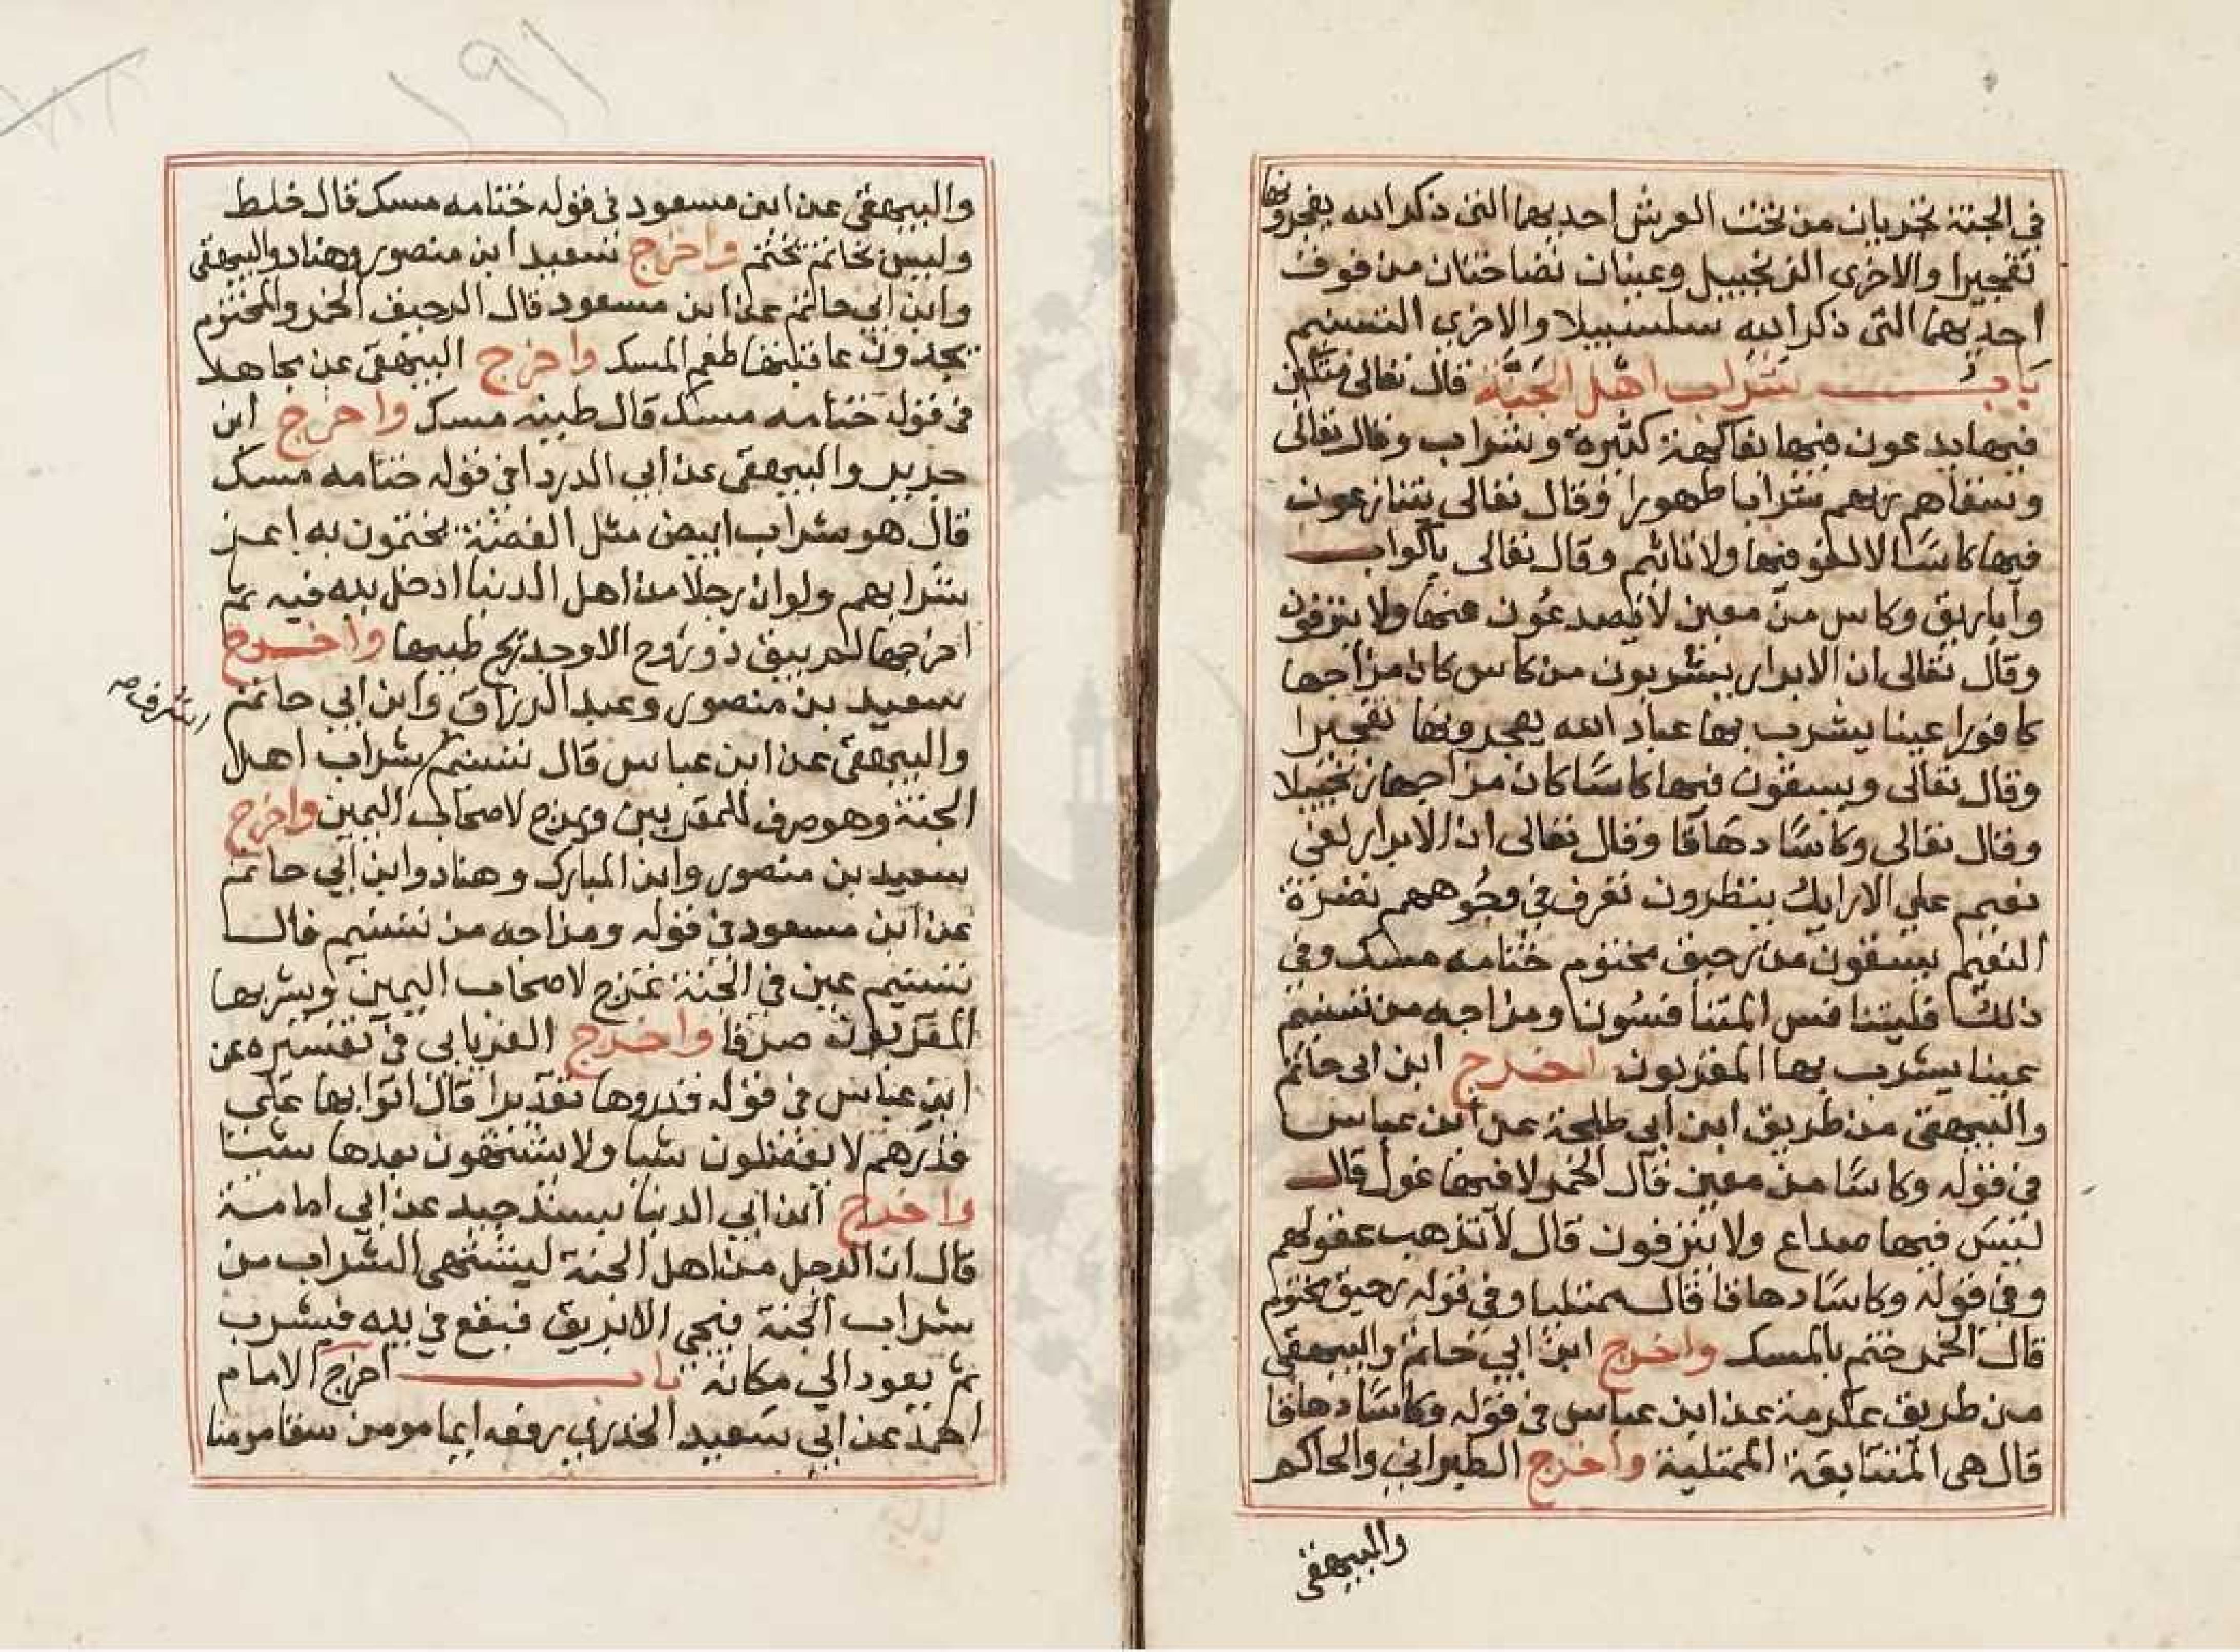 في الجنة تجريان من تحت العرش احديهما التى ذكر الله يفجرونها
تفجيرا والاخرى الزنجبيل وعينان نضاختان من فوق
احديهما التى ذكر الله سلسبيلا والاخرى التسنيم
باب شراب اهل الجنة قال تعالى متكين
فيها يدعون فيها بفاكهة كثيرة وشراب وقال تعالى
وسقاهم ربهم شرابا طهورا وقال تعالى يتنازعون
فيها كاسا لا لغو فيها ولا تاثيم وقال تعالى باكواب
واباريق وكاس من معين لا يصدعون عنها ولا ينزفون
وقال تعالى ان الابرار يشربون من كاس كان مزاجها
كافورا عينا يشرب بها عباد الله يفجرونها تفجيرا
وقال تعالى ويسقون فيها كاسا كان مزاجها زنجبيلا
وقال تعالى وكاسا دهاقا وقال تعالى ان الابرار لفي
نعيم علي الارايك ينظرون تعرف في وجوههم نضرة
النعيم يسقون من رحيق مختوم ختامه مسك وفي
ذلك فليتنافس المتنافسون ومزاجه من تسنيم
عينا يشرب بها المقربون اخرج ابن ابى حاتم
والبيهقى من طريق ابن أبي طلحة عن ابن عباس
في قوله وكاسا من معين قال الخمر لا فيها غول قال
ليس فيها صداع ولا ينزفون قال لا تذهب عقولهم
وفي قوله وكاسا دهاقا قال ممتليا وفي قوله رحيق مختوم
قال الخمر ختم بالمسك واخرج ابن ابي حاتم والبيهقى
من طريق عكرمة عن ابن عباس في قوله وكاسا دهاقا
قال هى المتتابعة الممتلية واخرج الطبراني والحاكم
والبيهقى
١٩١
والبيهقى عن ابن مسعود في قوله ختامه مسك قال خلط
وليس بخاتم يختم واخرج سعيد ابن منصور وهناد والبيهقى
وابن ابي حاتم عن ابن مسعود قال الرحيق الخمر والمختوم
يجدون عاقبتها طعم المسك واخرج البيهقى عن مجاهد
في قوله ختامه مسك قال طينه مسك واخرج ابن
جرير والبيهقى عن ابي الدردا في قوله ختامه مسك
قال هو شراب ابيض مثل الفضة يختمون به اخر
شرابهم ولو ان رجلا من اهل الدنيا ادخل يده فيه ثم
اخرجها لم يبق ذو روح الا وجد ريح طيبها واخرج
سعيد بن منصور وعبد الرزاق وابن ابي حاتم
والبيهقى عن ابن عباس قال تسنيم شراب اهل
الجنة وهو صرف للمقربين ويمزج لاصحاب اليمين واخرج
سعيد بن منصور وابن المبارك وهناد وابن ابي حاتم
عن ابن مسعود في قوله ومزاجه من تسنيم قال
تسنيم عين في الجنة تمزج لاصحاب اليمين ويشربها
المقربون صرفا واخرج الفريابى فى تفسيره عن
ابن عباس في قوله قدروها تقديرا قال اتوا بها على
قدرهم لا يفضلون شيا ولا يشتهون بعدها شيئا
واخرج ابن ابي الدنيا بسند جيد عن ابي امامة
قال ان الرجل من اهل الجنة ليشتهي الشراب من
شراب الجنة فيجي الابريق فيقع في يده فيشرب
ثم يعود الي مكانه باب اخرج الامام
احمد عن ابي سعيد الخدري رفعه ايما مومن سقا مومنا